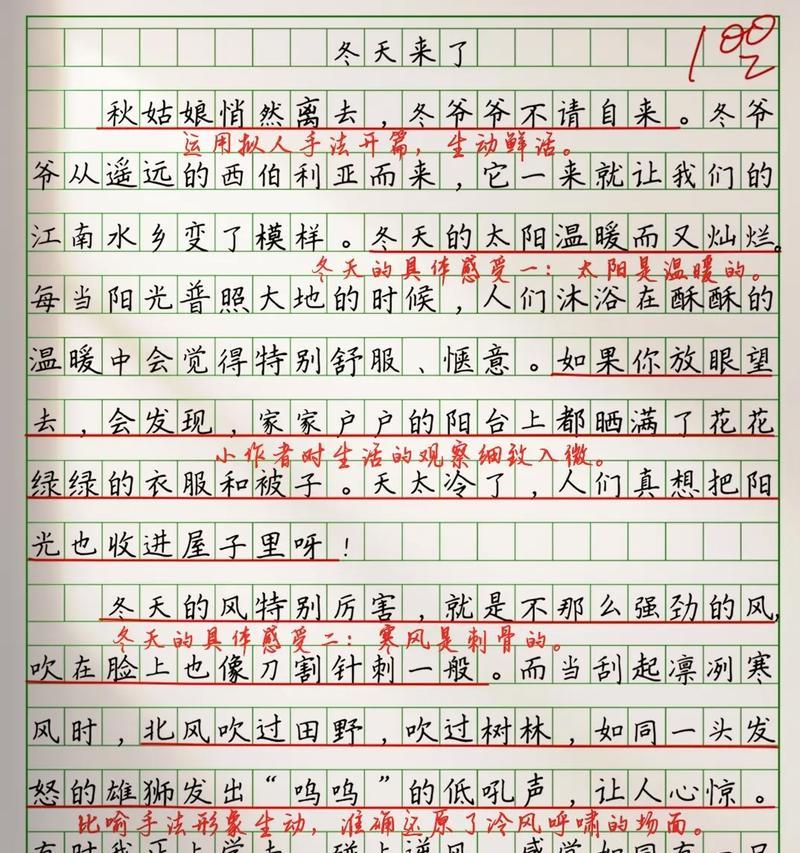 冬天来了
100
秋姑娘悄然离去，冬爷爷不请自来。冬爷
运用拟人手法开篇，生动鲜活。
爷从遥远的西伯利亚而来，它一来就让我们的
江南水乡变了模样。冬天的太阳温暖而又灿烂。
冬天的具体感受一：太阳是温暖的。
每当阳光普照大地的时候，人们沐浴在酥酥的
温暖中会觉得特别舒服、惬意。如果你放眼望
去，会发现，家家户户的阳台上都晒满了花花
小作者对生活的观察细致入微。
绿绿的衣服和被子。天太冷了，人们真想把阳
光也收进屋子里呀！
冬天的风特别厉害，就是不那么强劲的风，
冬天的具体感受二：寒风是刺骨的。
吹在脸上也像刀割针刺一般。而当刮起凛冽寒
风时，北风吹过田野，吹过树林，如同一头发
怒的雄狮发出“呜呜”的低吼声，让人心惊。
比喻手法形象生动，准确还原了冷风呼啸的场面。